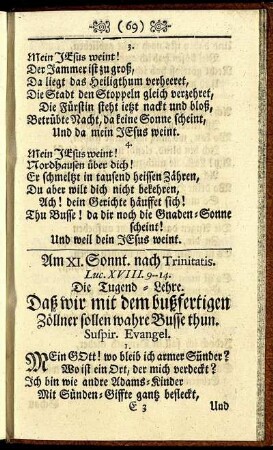 (69)
3.
Mein JEsus weint!
Der Jammer ist zu groß,
Da liegt das Heiligthum verheeret,
Die Stadt den Stoppeln gleich verzehret,
Die Fürstin steht jetzt nackt und bloß,
Betrübte Nacht, da keine Sonne scheint,
Und da mein JEsus weint.
4.
Mein JEsus weint!
Nordhausen über dich!
Er schmeltzt in tausend heissen Zähren,
Du aber wilt dich nicht bekehren,
Ach! dein Gerichte häuffet sich!
Thu Busse! da dir noch die Gnaden-Sonne
scheint!
Und weil dein JEsus weint.
Am XI. Sonnt. nach Trinitatis.
Luc. XVIII. 9-14.
Die Tugend-Lehre.
Daß wir mit dem bußfertigen
Zöllner sollen wahre Busse thun.
Suspir. Evangel.
1.
MEin GOtt! wo bleib ich armer Sünder?
Wo ist ein Ort, der mich verdeckt?
Ich bin wie andre Adams-Kinder
Mit Sünden-Giffte gantz befleckt,
E 3 Und